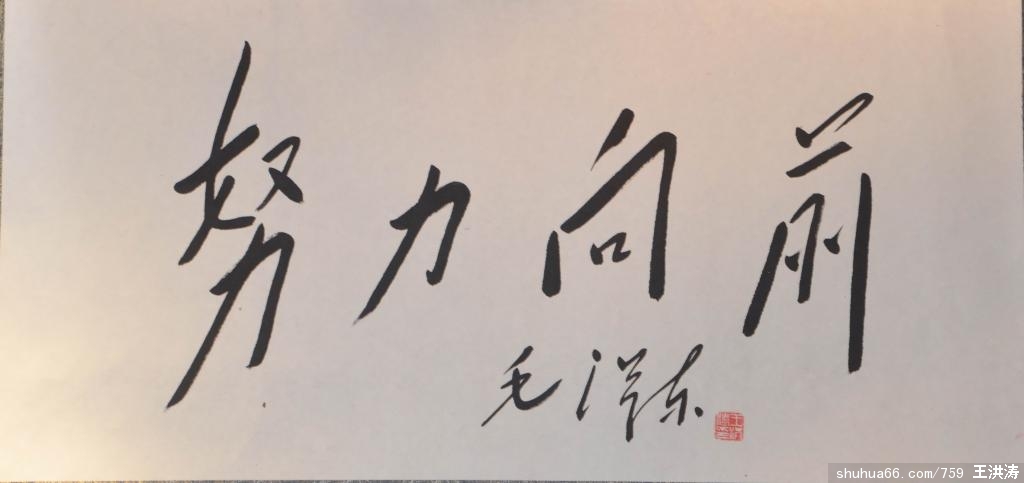 努力向前
毛泽东
shuhua66.com/759 王洪涛